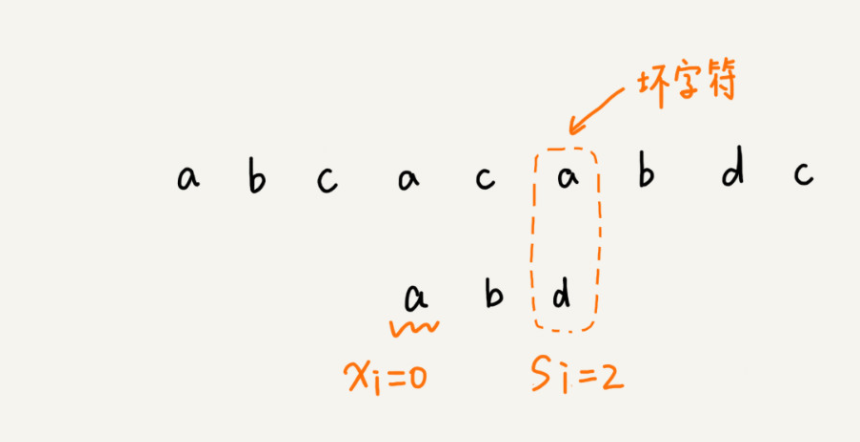 坏字符
a b c a c a b d c
a b d
xi=0 si=2